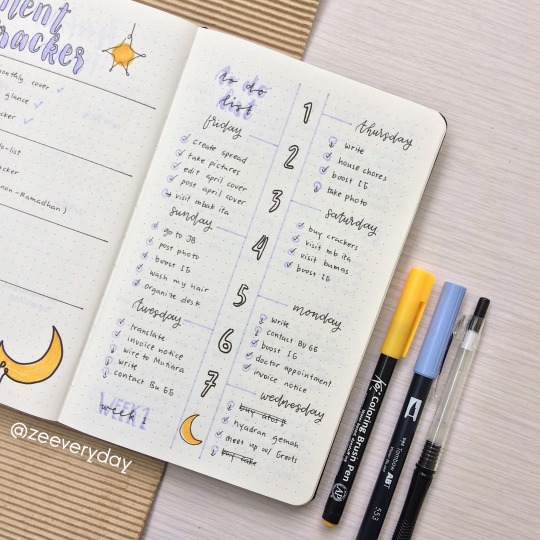 ment
tracker
monthly cover ✓
glance ✓
cker ✓
do-list
acker
non-Ramadhan)
to do
list
1
thursday
write
house chores
boost IG
take photo
friday
create spread
take pictures
edit april cover
post april cover
visit mbak ita
2
3
saturday
buy crackers
visit mb ita
visit bumas
boost IG
sunday
go to JB
post photo
boost IG
wash my hair
organize desk
4
5
monday
write
contact Bu GG
boost IG
doctor appointment
invoice notice
tuesday
translate
invoice notice
wire to Mutiara
write
contact Bu GG
6
7
wednesday
hyadran gemah
meet up w/
buy cake
WEEK 1
week 1
@zeeveryday
Coloring Brush Pen
553
Tombow ABT